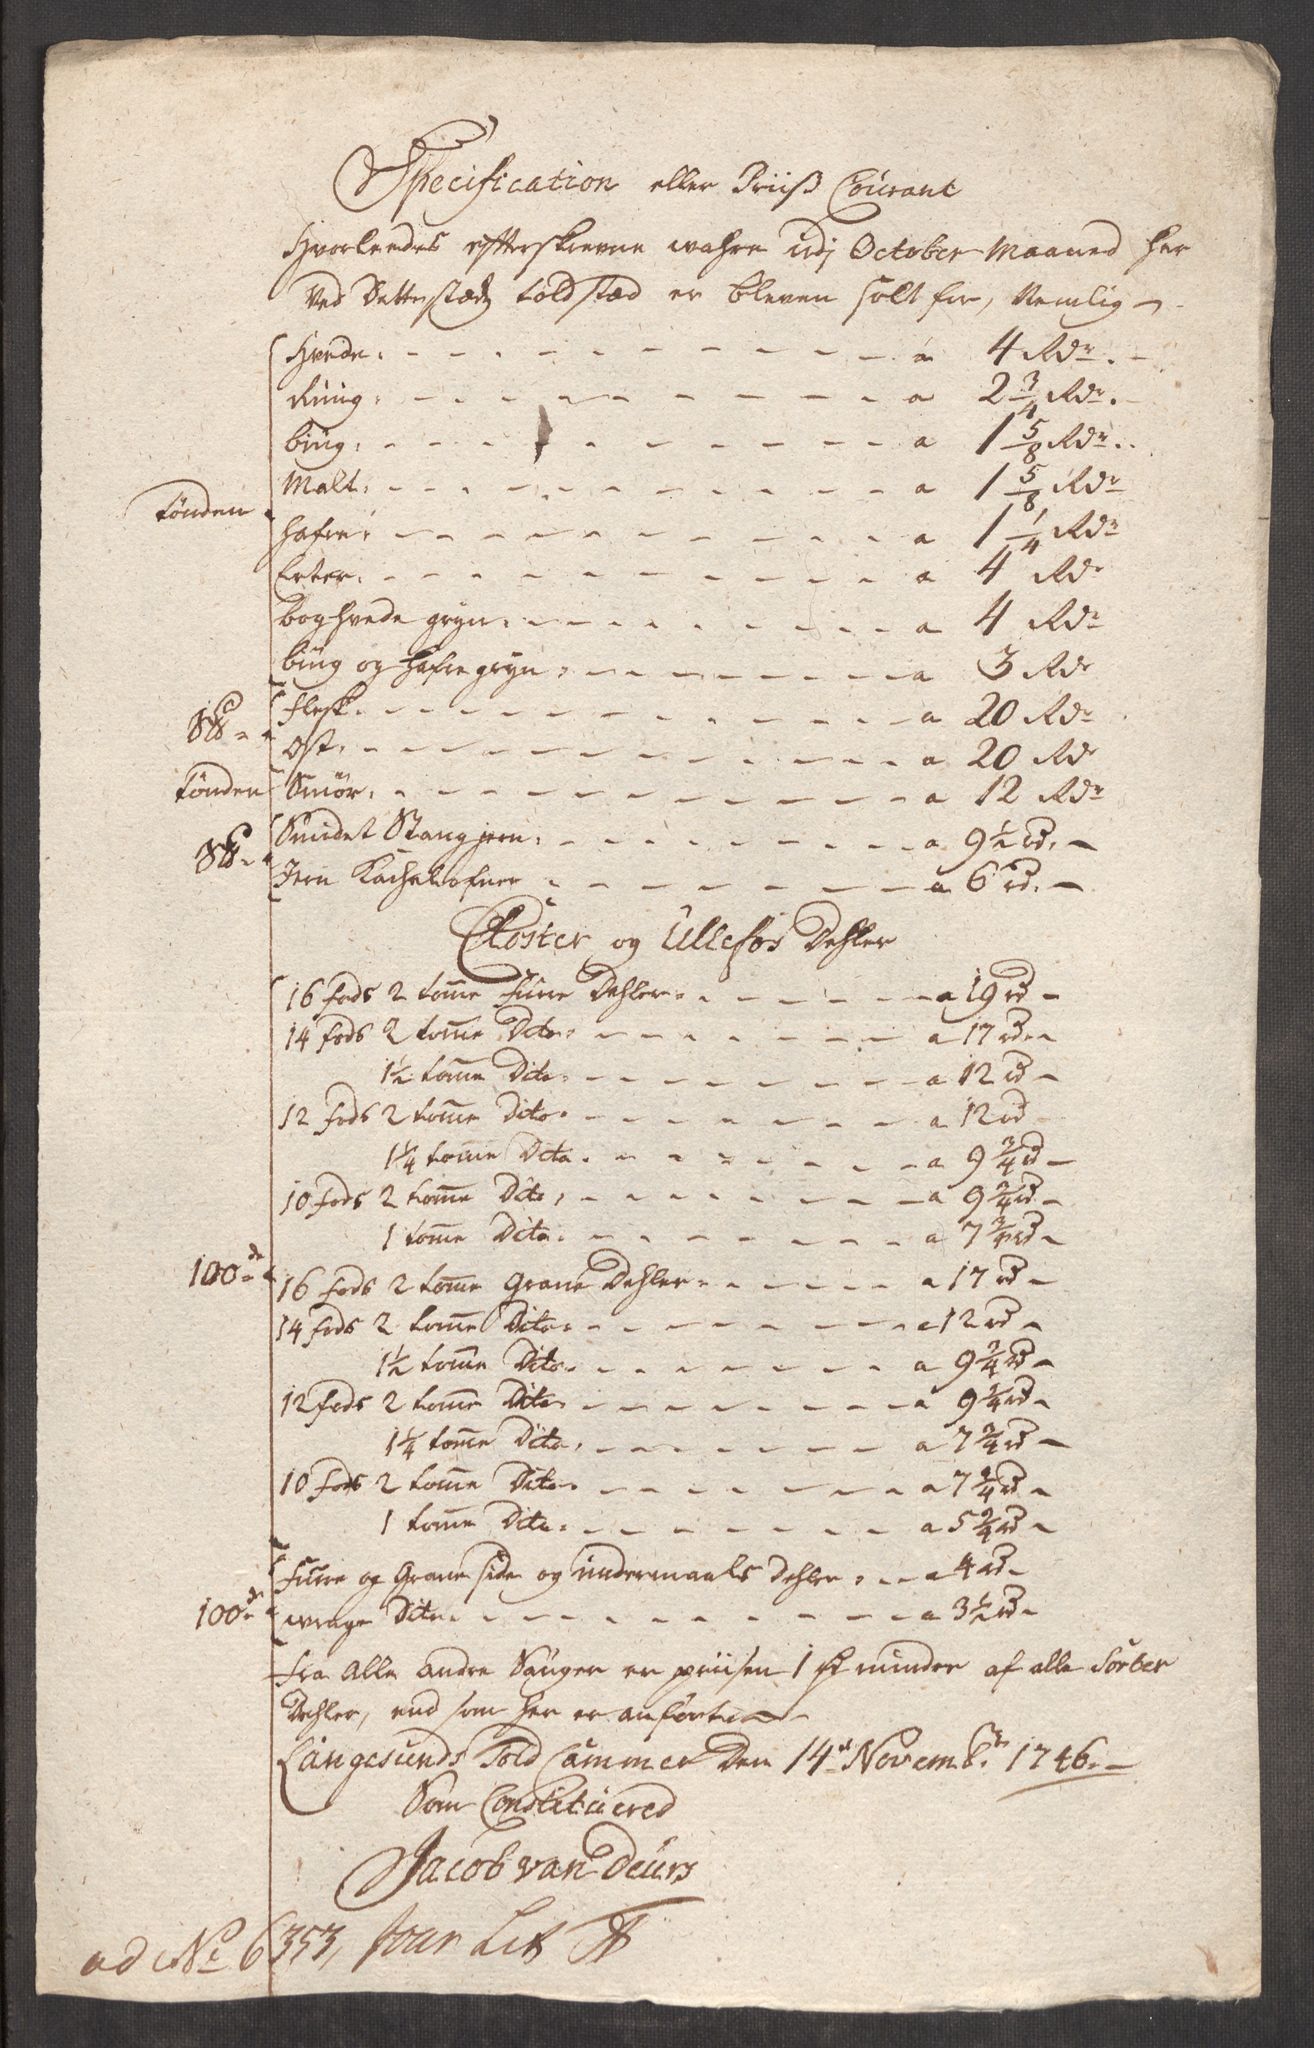 Specification eller Priis Courant
Hvorleedes efterskrevne wahre udj October Maaned her
Ved Dette stædz told stæd er bleven solt for, Nemlig
Hvede a 4 Rdr
Rüug a 2 3/4 Rdr.
büug a 1 5/8 Rdr.
Malt a 1 5/8 Rdr
Tönden
hafre a 1 1/4 Rdr
Erter a 4 Rdr
boghvede gryn a 4 Rdr
büug og hafre gryn a 3 Rdr
S℔
Flesk a 20 Rdr
Ost a 20 Rdr
Tönden Smör a 12 Rdr
S℔
Smidet Stang jern a 9 1/2 rd.
Jern Kachelofner a 6 rd.
Closter og Ullefos Dehler
16 fods 2 tomme Furre Dehler a 19 rd
14 fods 2 tomme Dito a 17 rd
1 1/2 tomme Dito a 12 rd
12 fods 2 tomme Dito a 12 rd
1 1/4 tomme Dito a 9 3/4 rd
10 fods 2 tomme Dito a 9 3/4 rd
1 tomme Dito a 7 3/4 rd
100de
16 fods 2 tomme Grane Dehler a 17 rd
14 fods 2 tomme Dito a 12 rd
1 1/2 tomme Dito a 9 3/4 rd
12 fods 2 tomme Dito a 9 3/4 rd
1 1/4 tomme Dito a 7 3/4 rd
10 fods 2 tomme Dito a 7 3/4 rd
1 tomme Dito a 5 3/4 rd
Furre og Grane side og undermaals Dehler a 4 rd
100de wrage Dito a 3 1/2 rd
Fra Alle andre Sauger er priisen 1 rd minder af alle Sorter
Dehler, end som her er anfört
Langesunds Told Cammer Den 14de Novembr 1746.
Som Constituered
Jacob van Deurs
ad No 6353, Jour Lit A